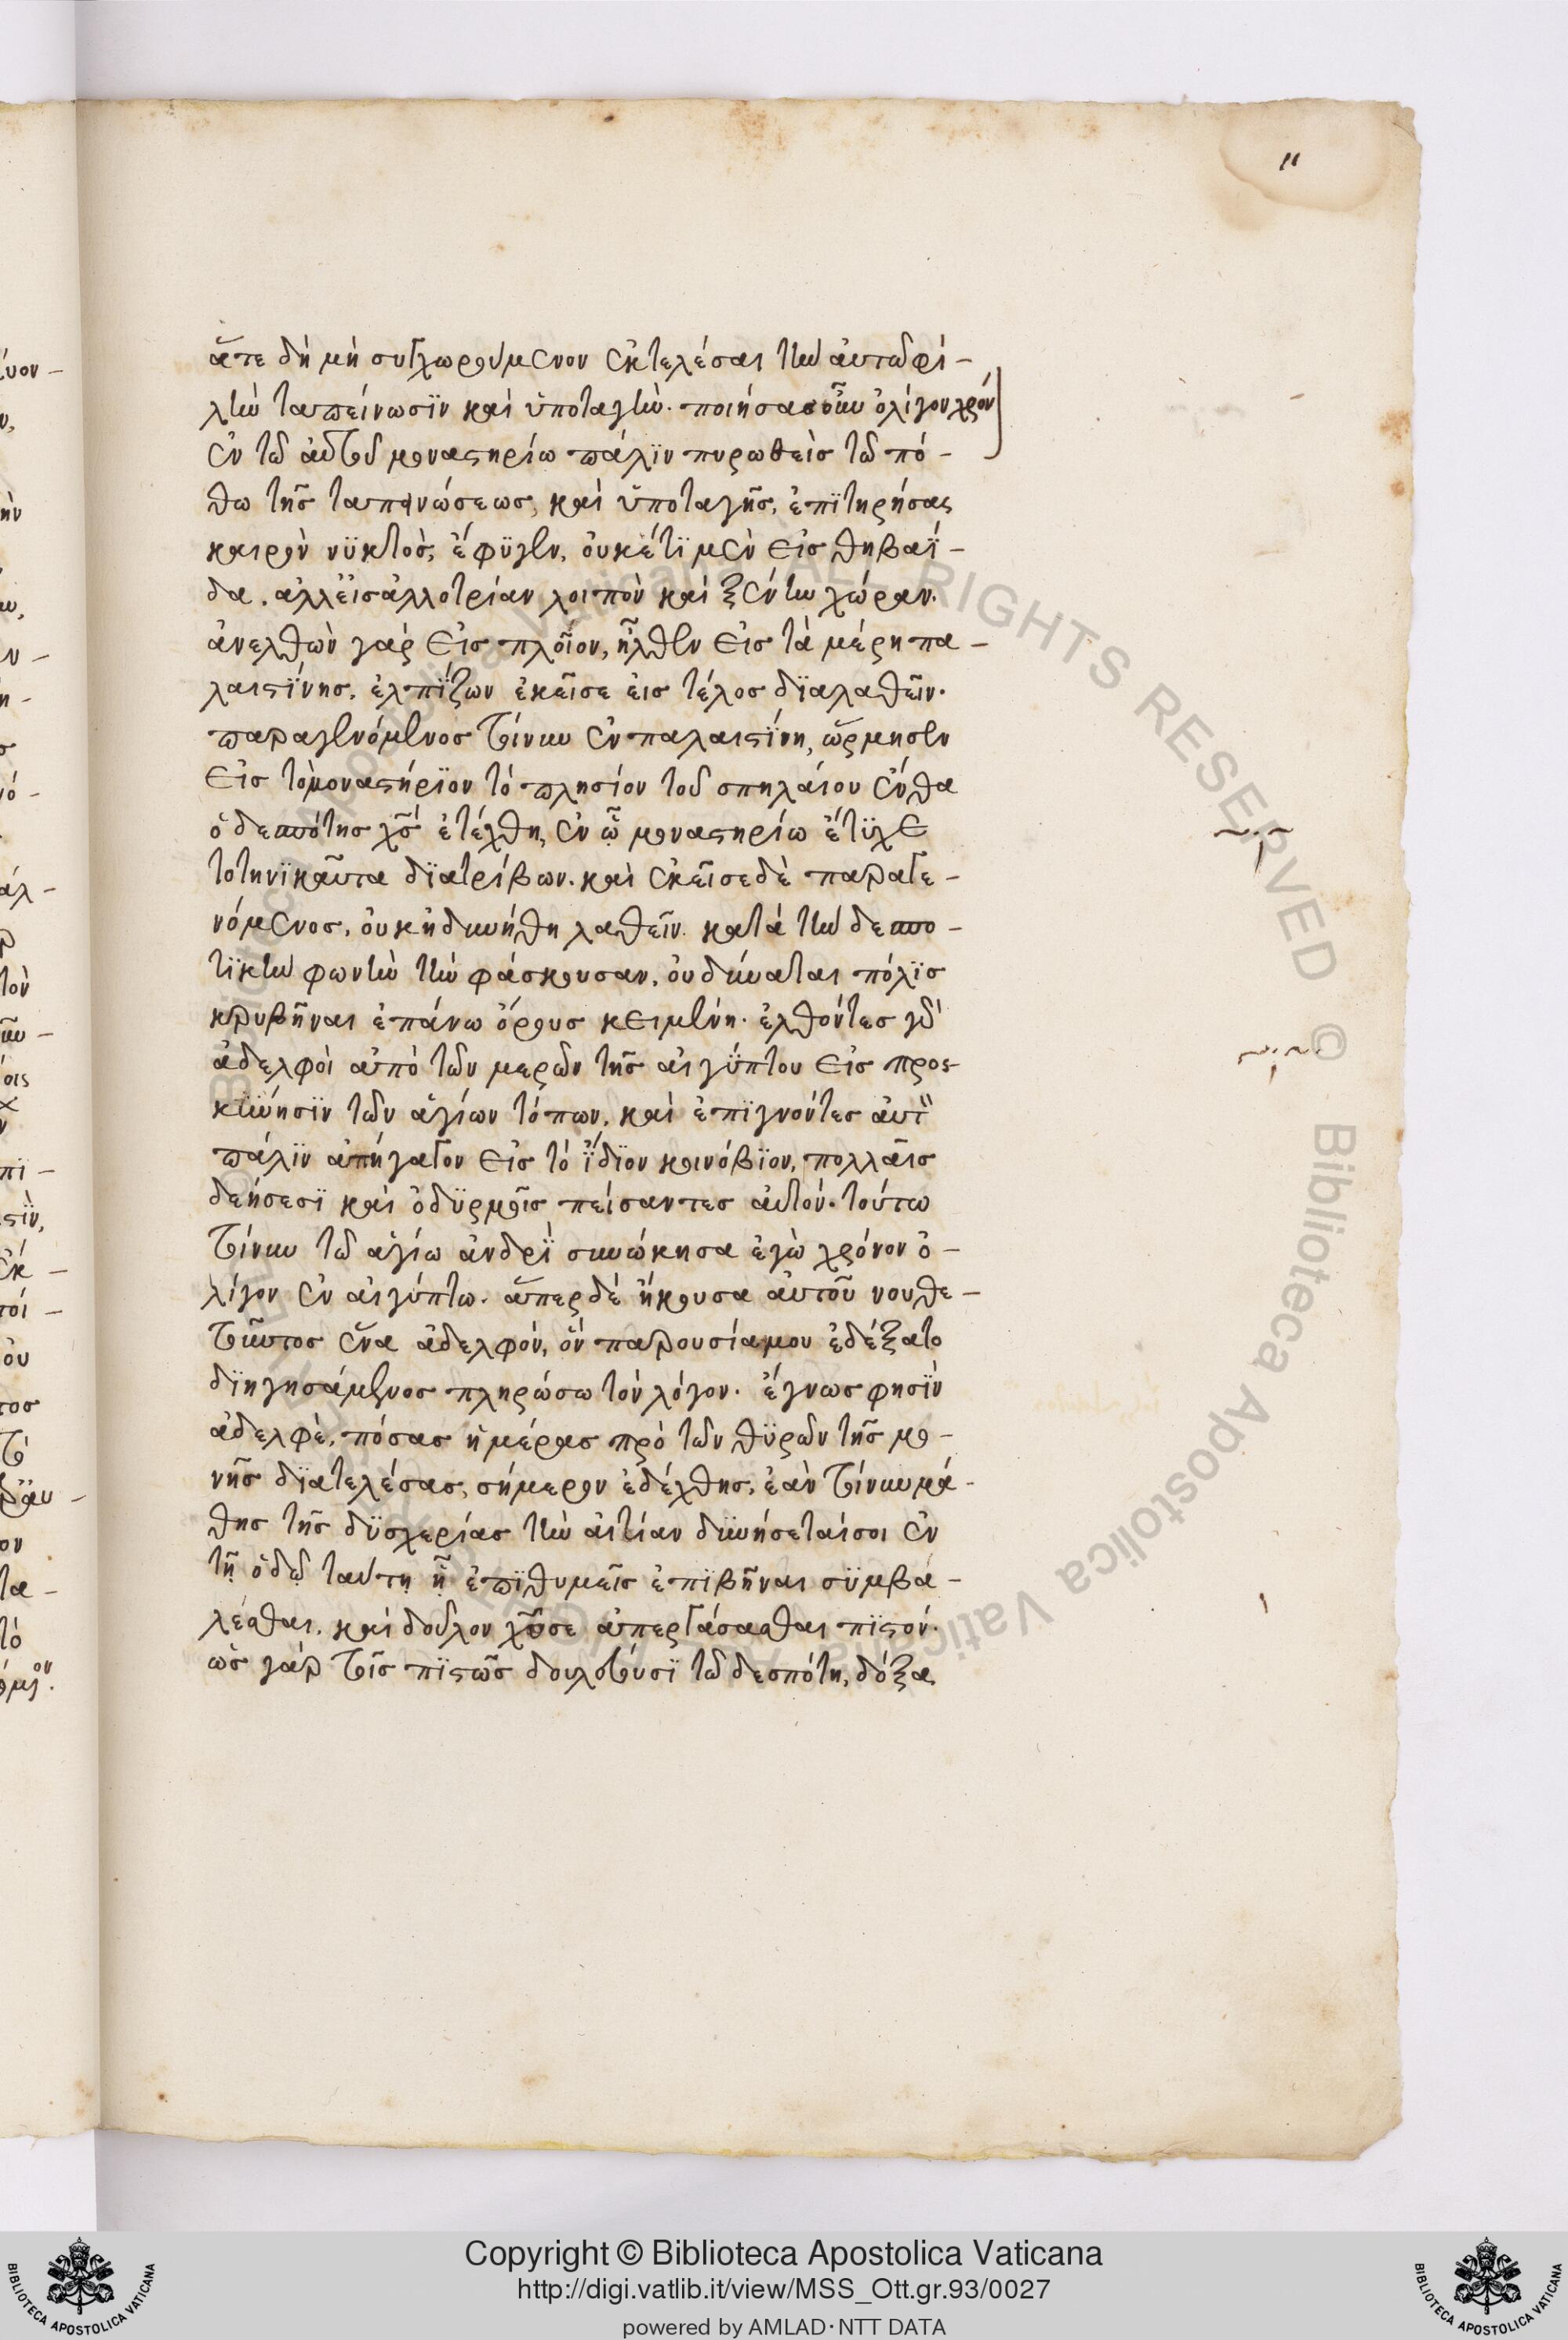 11
ἅτε δὴ μὴ συγχωρούμενον ἐκτελέσαι τὴν αὐτῶ φί-
λὴν ταπείνωσϊν καὶ ὑποταγὴν. ποιήσας οὖν ὀλίγον χρόν
ἐν τῶ αὐτοῦ μοναστηρίω πάλϊν πυρωθεὶς τῶ πό-
θω τῆς ταπεινώσεως, καὶ ὑποταγῆς, ἐπϊτηρήσας
καιρὸν νϋκτὸς, ἔφϋγεν, οὐκέτϊ μὲν εἰς θηβαΐ-
δα. ἀλλ' εἰς ἀλλοτρίαν λοιπὸν καὶ ξένην χώραν.
ἀνελθὼν γὰρ εἰς πλοῖον, ἦλθεν εἰς τὰ μέρη πα-
λαιστΐνης, ἐλπΐζων ἐκεῖσε εἰς τέλος δϊαλαθεῖν.
παραγενόμενος τοίνυν ἐν παλαιστΐνη, ὥρμησεν
εἰς τὸ μοναστήρϊον τὸ πλησίον τοῦ σπηλαίου ἔνθα
ὁ δεσπότης χς ἐτέχθη, ἐν ᾧ μοναστηρίω ἔτϋχε
τοτηνϊκαῦτα δϊατρίβων. καὶ ἐκεῖσε δὲ παραγε-
νόμενος, οὐκ ἠδυνήθη λαθεῖν. κατὰ τὴν δεσπο-
τϊκὴν φωνὴν τὴν φάσκουσαν, οὐ δύναται πόλϊς
κρυβῆναι ἐπάνω ὄρους κειμένη. ἐλθόντες γὰρ
ἀδελφοὶ ἀπὸ τῶν μερῶν τῆς αἰγϋπτου εἰς προσ-
κϋνησϊν τῶν ἁγίων τόπων, καὶ ἐπϊγνόντες αὐτὸν
πάλϊν ἀπήγαγον εἰς τὸ ἴδϊον κοινόβϊον, πολλαῖς
δεήσεσϊ καὶ ὀδϋρμοῖς πείσαντες αὐτόν. τούτω
τοίνυν τῶ ἁγίω ἀνδρὶ συνώκησα ἐγὼ χρόνον ὀ-
λίγον ἐν αἰγύπτω. ἅπερ δὲ ἤκουσα αὐτοῦ νουθε-
τοῦντος ἕνα ἀδελφόν, ὃν παρουσία μου ἐδέξατο
δϊηγησάμενος πληρώσω τὸν λόγον. ἔγνως φησὶν
ἀδελφὲ, πόσας ἡμέρας πρὸ τῶν θϋρῶν τῆς μο-
νῆς δϊατελέσας, σήμερον ἐδέχθης, ἐὰν τοίνυν μά-
θης τῆς δϋσχερίας τὴν αἰτίαν δυνήσεταί σοι ἐν
τῇ ὁδῷ ταύτῃ ᾗ ἐπϊθυμεῖς ἐπϊβῆναι σϋμβα-
λέσθαι, καὶ δοῦλον χῦ σε ἀπεργάσασθαι πϊστόν.
ὡς γὰρ τοῖς πϊστῶς δουλεύουσϊ τῶ δεσπότη, δόξα
Copyright © Biblioteca Apostolica Vaticana
http://digi.vatlib.it/view/MSS_Ott.gr.93/0027
powered by AMLAD·NTT DATA